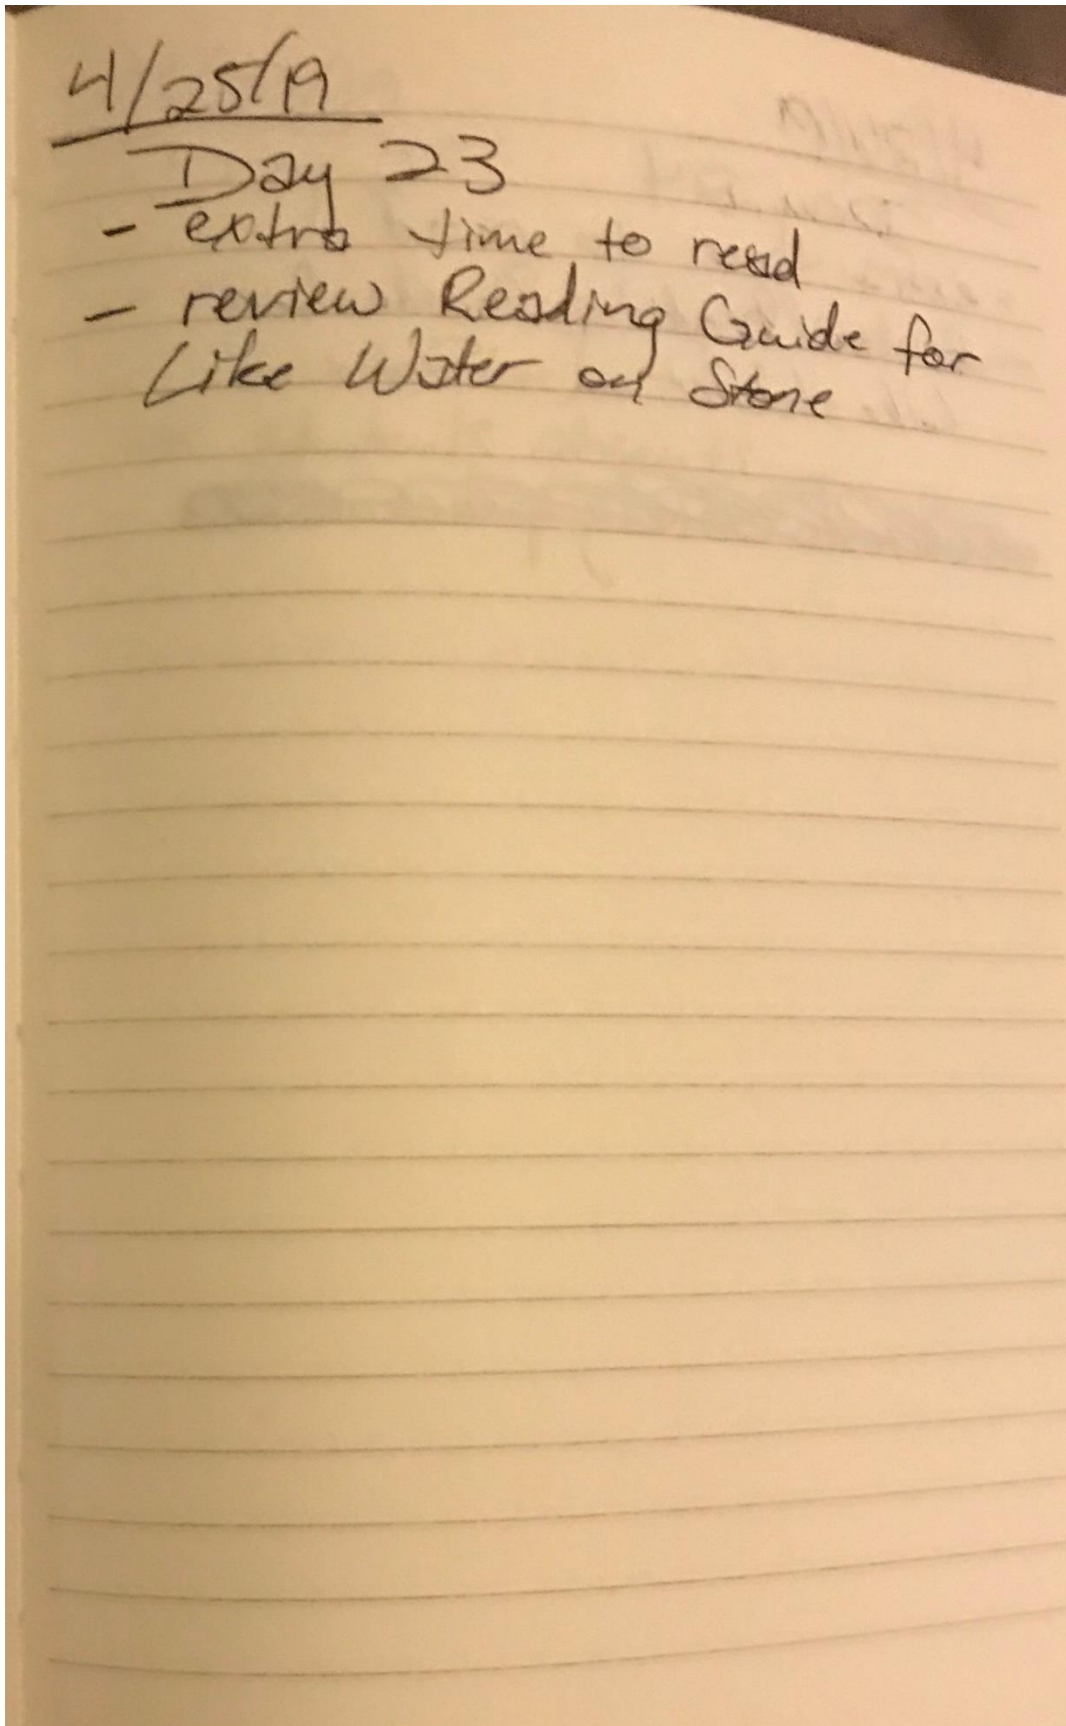 4/25/19
Day 23
- extra time to read
- review Reading Guide for
Like Water on Stone